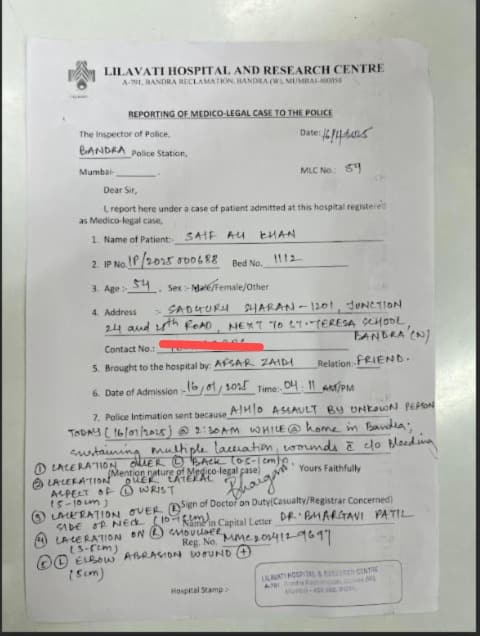 LILAVATI HOSPITAL AND RESEARCH CENTRE
A-791, BANDRA RECLAMATION, BANDRA (W), MUMBAI-400050
REPORTING OF MEDICO-LEGAL CASE TO THE POLICE
The Inspector of Police,
Date: 16/1/2025
BANDRA Police Station,
Mumbai-
MLC No.: 59
Dear Sir,
I, report here under a case of patient admitted at this hospital registered
as Medico-legal case,
1. Name of Patient:- SAIF ALI KHAN
2. IP No. IP/2025000688 Bed No. 1112
3. Age :- 54, Sex :- Male/Female/Other
4. Address :- SADGURU SHARAN-1201, JUNCTION
24 and 28th ROAD, NEXT TO ST. TERESA SCHOOL,
BANDRA (W)
Contact No.:
5. Brought to the hospital by: AFSAR ZAIDI Relation: FRIEND.
6. Date of Admission :- 16/01/2025 Time:- 04:11 AM/PM
7. Police Intimation sent because A/H/O ASSAULT BY UNKOWN PERSON
TODAY (16/01/2025) @ 2:30AM WHILE @ home in Bandra,
sustaining multiple laceration, wounds c̄ c/o bleeding
(Mention nature of Medico-legal case) Yours Faithfully
① LACERATION OVER Ⓛ BACK (0.5-1cm)
② LACERATION OVER LATERAL
ASPECT OF Ⓛ WRIST
(5-10cm)
③ LACERATION OVER Ⓡ
SIDE OF NECK (10-15cm)
④ LACERATION ON Ⓡ SHOULDER
(3-5cm)
⑤ Ⓛ ELBOW ABRASION WOUND ⊕
(5cm)
Sign of Doctor on Duty(Casualty/Registrar Concerned)
Name in Capital Letter DR. BHARGAVI PATIL
Reg. No. MMC2024129697
Hospital Stamp :-
LILAVATI HOSPITAL & RESEARCH CENTRE
A-791, Bandra Reclamation, Bandra (W),